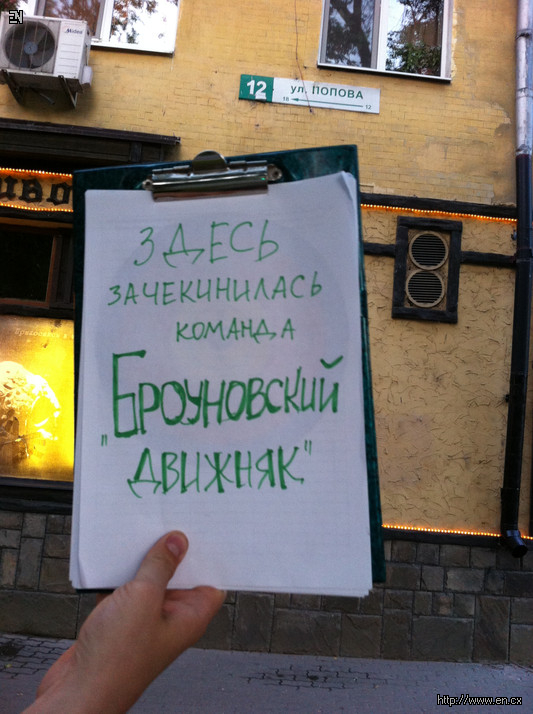 EN
Midea
12 ул. ПОПОВА
16 12
ЗДЕСЬ
ЗАЧЕКИНИЛАСЬ
КОМАНДА
"БРОУНОВСКИЙ
ДВИЖНЯК"
http://www.en.cx